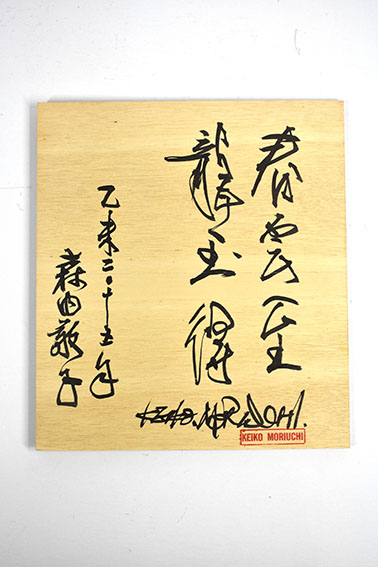 春
龍玉得
乙未二〇十五年
森内敬子
KEIKO.MORIUCHI.
KEIKO MORIUCHI